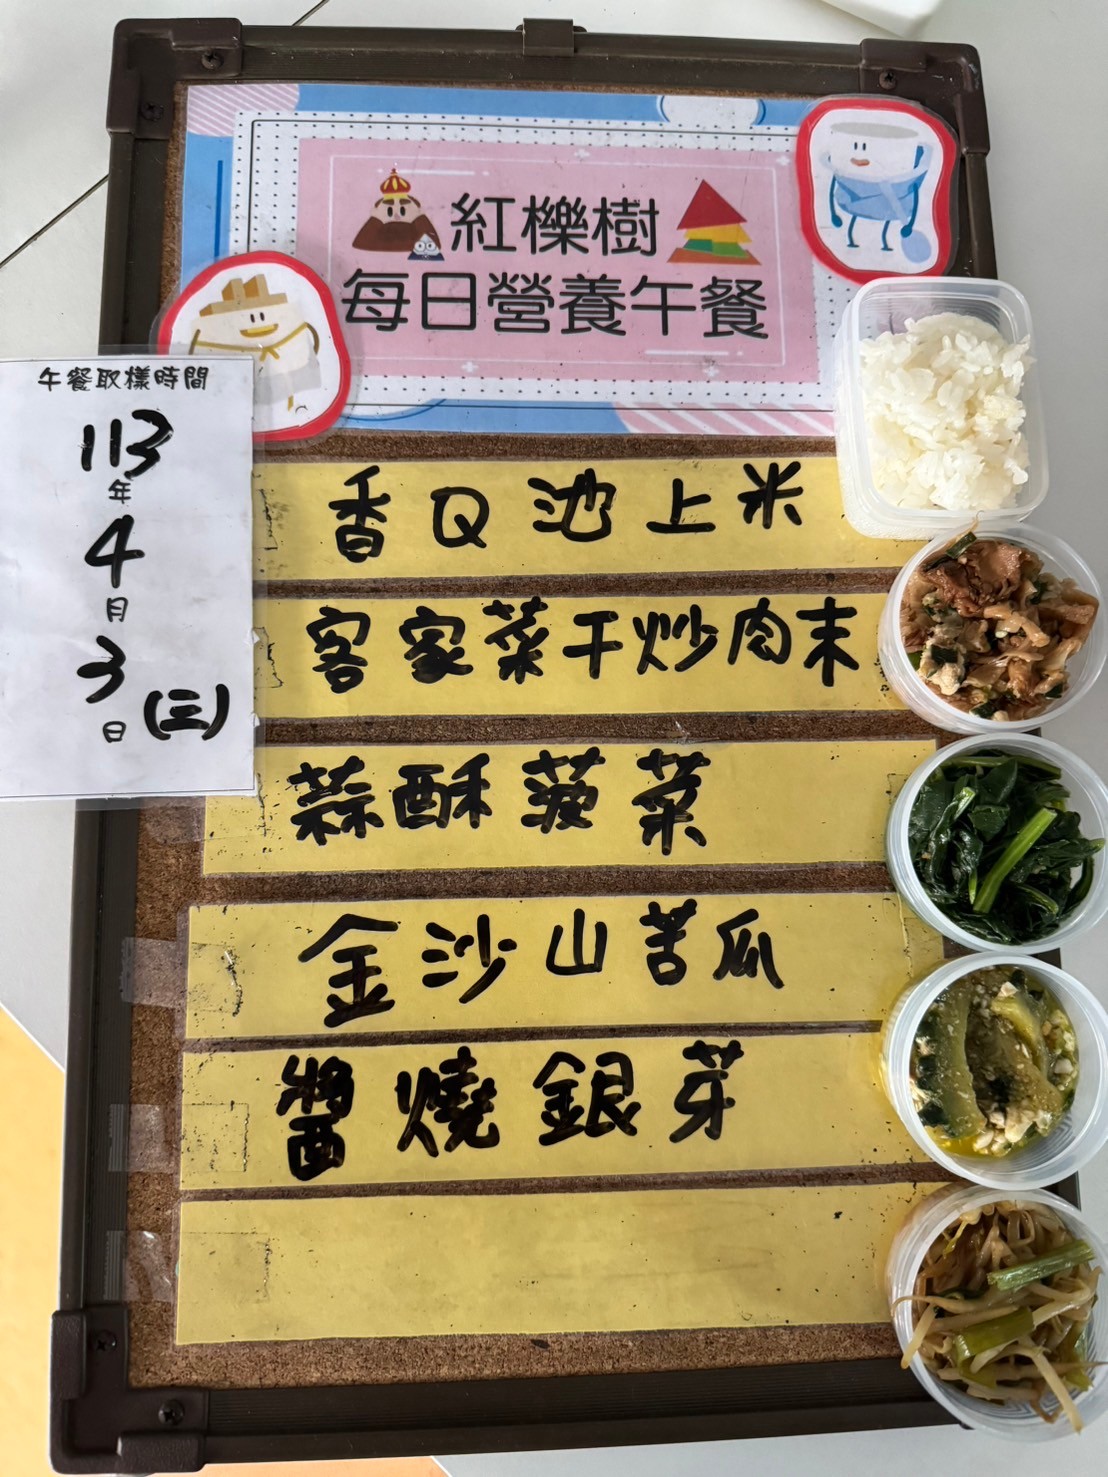 紅櫟樹
每日營養午餐
午餐取樣時間
113
年
4
月
3
日 (三)
香Q池上米
客家菜干炒肉末
蒜酥菠菜
金沙山苦瓜
醬燒銀芽